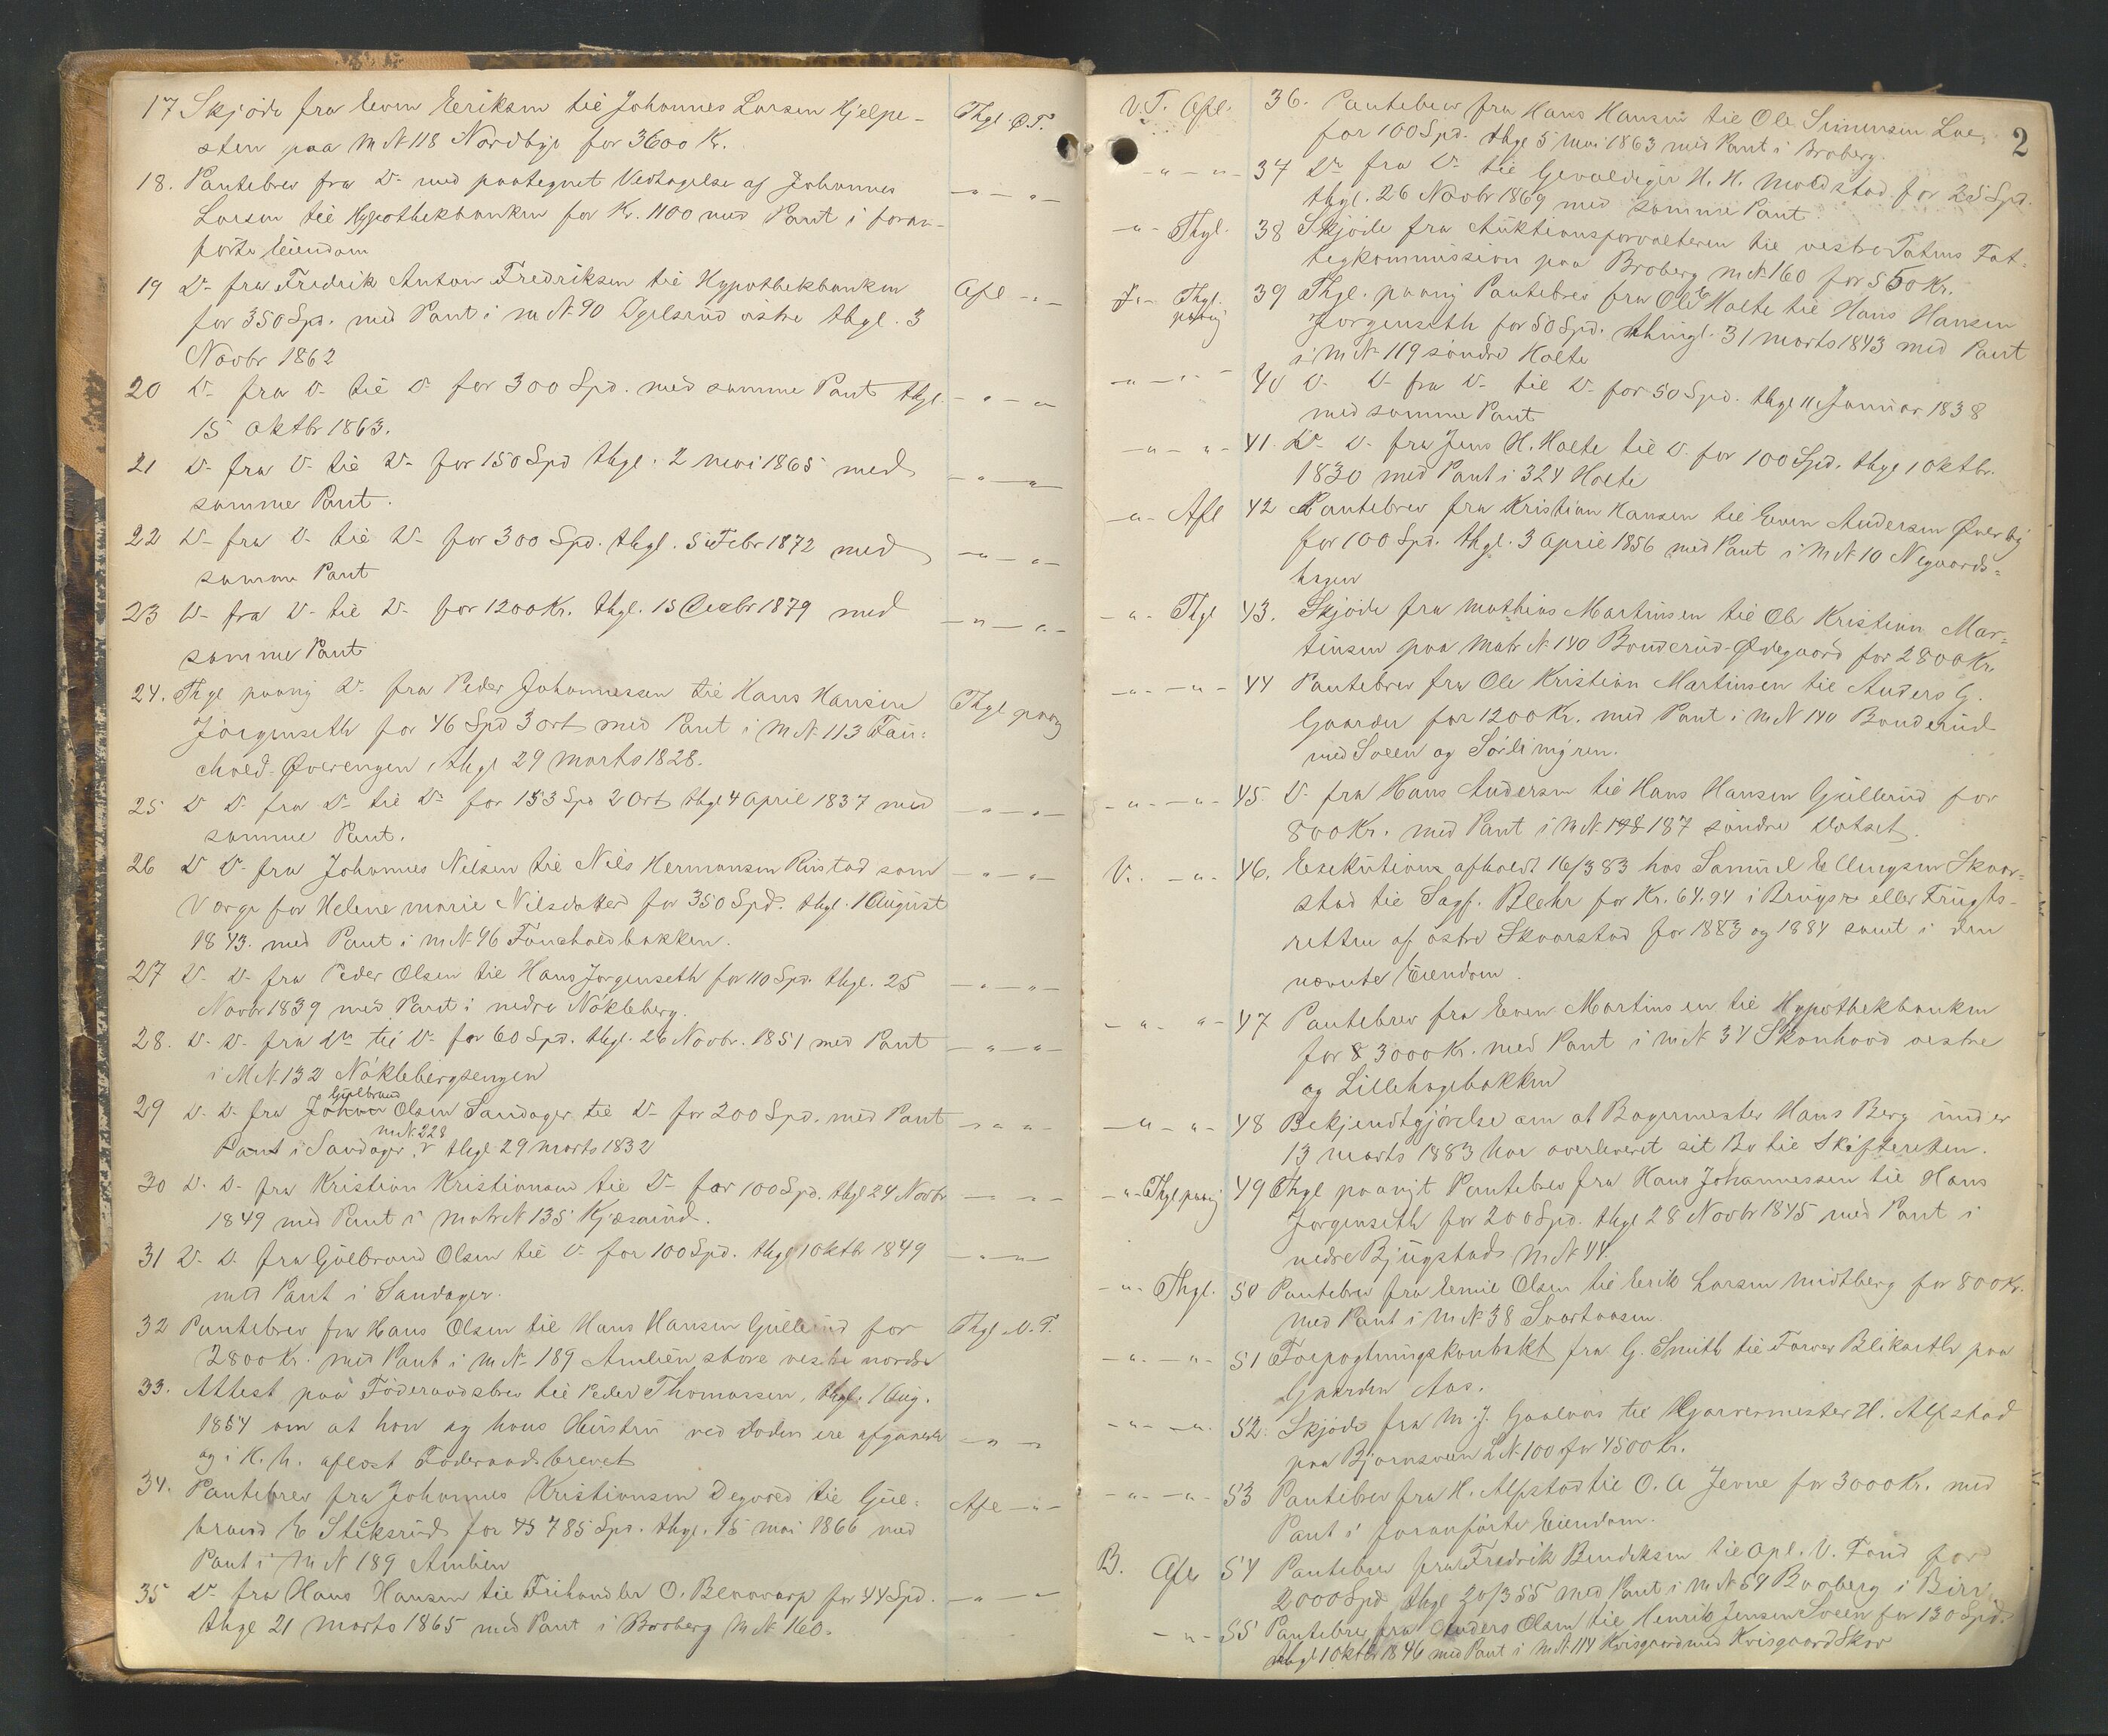 17 Skjöde fra Even Eriksen til Johannes Larsen Hjelpe- Thgl. Ø.T.
sten paa M N 118 Nordbye for 3600 Kr.
18. Pantebrev fra D- med paategnet Vedtagelse af Johannes -"-"-
Larsen til Hypothekbanken for Kr. 1100 med Pant i foran-
förte Eiendom
19 D- fra Fredrik Anton Fredriksen til Hypothekbanken Afl -"-
for 350 Spd. med Pant i M N 90 Ögelsrud östre thgl. 3
Novbr 1862
20 D- fra D- til D- for 300 Spd. med samme Pant thgl. -"-"-
15 Oktbr 1863.
21 D- fra D- til D- for 150 Spd thgl. 2 mai 1865 med -"-"-
samme Pant.
22 D- fra D- til D- for 300 Spd. thgl. 5 Febr 1872 med -"-"-
samme Pant
23 D- fra D- til D- for 1200 Kr. thgl. 15 Decbr 1879 med -"-"-
samme Pant
24. Thgl paany D- fra Peder Johannessen til Hans Hansen Thgl paany
Jörgenseth for 46 Spd 3 ort med Pant i M N 113 Fau-
chald-Øverengen, thgl 29 Marts 1828.
25 D D- fra D- til D- for 153 Spd 2 Ort thgl 4 April 1837 med -"-"-
samme Pant.
26 D D- fra Johannes Nilsen til Nils Hermansen Rustad som -"-"-
Værge for Helene Marie Nilsdatter for 350 Spd. thgl. 1 August
1843. med Pant i M N 96 Fauchaldbakken.
27 D- D- fra Peder Olsen til Hans Jörgenseth for 110 Spd. thgl. 25 -"-"-
Novbr 1839 med Pant i nedre Nökleberg.
28. D- D- fra D- til D- for 60 Spd. thgl. 26 Novbr. 1851 med Pant -"-"-
i M N 132 Nöklebergsengen
29 D. D. fra Johan Gulbrand Olsen Sandager til D- for 200 Spd. med Pant -"-"-
Pant i Sandager M N 228 thgl 29 Marts 1832
30 D. D- fra Kristian Kristiansen til D- for 100 Spd. thgl 24 Novbr -"-"-
1849 med Pant i Matr N 135 Kjæsrud.
31 D. D. fra Gulbrand Olsen til D- for 100 Spd. thgl 1 Oktbr 1849 -"-"-
med Pant i Sandager.
32 Pantebrev fra Hans Olsen til Hans Hansen Gullerud for Thgl. V.T.
2800 Kr. med Pant i M N 189 Amlien store vestre nordre
33. Attest paa Föderaadsbrev til Peder Thomassen, thgl. 1 Aug.
1854 om at han og hans Hustru ved Döden ere afgaaede -"-"-
og i K. h. aflöst Föderaadsbrevet
34. Pantebrev fra Johannes Kristiansen Degvold til Gul- Afl -"-
brand E Stiksrud for 785 Spd. thgl. 15 mai 1866 med
Pant i M N 189 Amlien
35 D- fra Hans Hansen til Frihandler O. Blaavarp for 44 Spd. -"-"-
thgl 21 Marts 1865 med Pant i Broberg M N 160.
2
V.T. Afl. 36. Pantebrev fra Hans Hansen til Ole Simensen Lae
for 100 Spd. thgl 5 Mai 1863 med Pant i Broberg.
-"-"- 37 D- fra D- til Gevaldiger H. H. Moldstad for 25 Spd.
thgl. 26 Novbr 1869 med samme Pant.
-"- Thgl. 38 Skjöde fra Auktionsforvalteren til vestre Totens Fat-
tigkommission paa Broberg M N 160 for 550 Kr.
-"- Thgl. paany 39 Thgl. paany Pantebrev fra Ole Holte til Hans Hansen
Jörgenseth for 50 Spd. thingl. 31 Marts 1843 med Pant
i M N 119 söndre Holte
-"-"- 40 D- D- fra D- til D- for 50 Spd. thgl 11 Januar 1838
med samme Pant
-"-"- 41. D- D- fra Jens H. Holte til D. for 100 Spd. thgl 1 Oktbr.
1830 med Pant i 324 Holte
-"- Afl 42 Pantebrev fra Kristian Hansen til Even Andersen Øverby
for 100 Spd. thgl. 3 April 1856 med Pant i M N 10 Nygaards-
hagen
-"- Thgl 43. Skjöde fra Mathias Martinsen til Ole Kristian Mar-
tinsen paa Matr N 140 Bonderud-Ødegaard for 2800 Kr.
-"-"- 44 Pantebrev fra Ole Kristian Martinsen til Anders G.
Gaarder for 1200 Kr. med Pant i M N 140 Bonderud
med Sveen og Sörlimyren.
-"-"- 45 D. fra Hans Andersen til Hans Hansen Gullerud for
800 Kr. med Pant i M N 187 söndre Dotset.
V. -"- 46. Exekution afholdt 16/3 83 hos Samuel Ellingsen Skaar-
stad til Sagf. Blehr for Kr. 64.94 i Brugs eller Frugts-
retten af östre Skaarstad for 1883 og 1884 samt i den
nævnte Eiendom.
-"-"- 47 Pantebrev fra Even Martinsen til Hypothekbanken
for 3000 Kr. med Pant i M N 34 Skonhovd vestre
og Lillehagebakken
-"-"- 48 Bekjendtgjörelse om at Bagermester Hans Berg under
13 Marts 1883 har overleveret sit Bo til Skifteretten.
-"- Thgl paany 49 Thgl paanyt Pantebrev fra Hans Johannessen til Hans
Jörgenseth for 200 Spd. thgl 28 Novbr 1845 med Pant i
nedre Bjugstad M N 44.
-"- Thgl. 50 Pantebrev fra Emil Olsen til Erik Larsen Midtberg for 800 Kr.
med Pant i M N 38 Svartaasen.
-"-"- 51 Forpagtningskontrakt fra G. Smith til Farver Blikarth paa
Gaarden Aas.
-"-"- 52. Skjöde fra M. J. Gaalaas til Garvermester H. Alfstad
paa Bjornsveen L N 100 for 4500 Kr.
-"-"- 53 Pantebrev fra H. Alfstad til O. A Jevne for 3000 Kr. med
Pant i foranförte Eiendom.
B. Afl 54 Pantebrev fra Fredrik Bendiksen til Opl. V. Fond for
2000 Spd thgl 20/3 55 med Pant i M N 54 Braaberg i Biri
-"- 55 Pantebrev fra Anders Olsen til Henrik Jensen Sveen for 130 Spd.
thgl 1 Oktbr 1846 med Pant i M N 114 Kvisgaard med Kvisgaard Skov